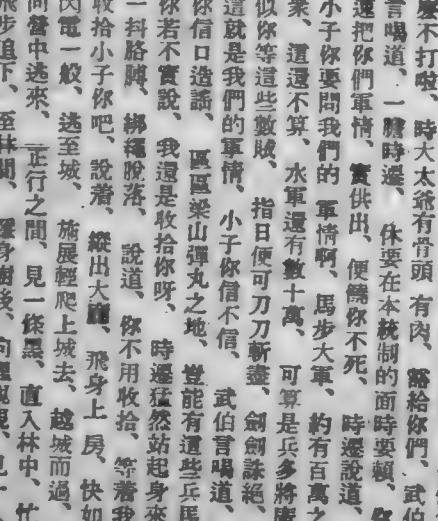 麽不打啦、時大太爺有骨頭、有肉、豁給你們、武伯
言喝道、一膽時遷、休要在本統制的面時要賴、你
還把你們軍情、實供出、便饒你不死、時遷說道、
小子你要問我們的軍情啊、馬步大軍、約有百萬之
衆、這還不算、水軍還有數十萬、可算是兵多將
似你等這些數賊、指日便可刀刀斬盡、劍劍誅絕、
這就是我們的軍情、小子你信不信、武伯言喝道、
你信口造謠、區區梁山彈丸之地、豈能有這些兵馬
你若不實說、我還是收拾你呀、時遷猛然站起身來
一抖胳膊、綁繩脫落、說道、你不用收拾、等着我
收拾小子你吧、說着、縱出大廳、飛身上房、快如
閃電一般、逃至城、施展輕爬上城去、越城而過、
向營中逃來、正行之間、見一條黑、直入林中、忙
步追下、至林間、身樹後、向